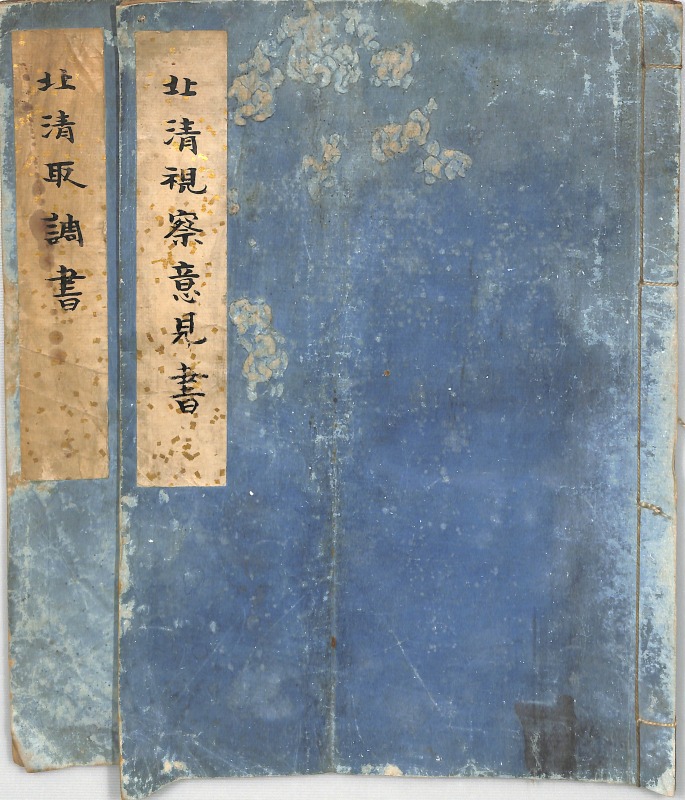 北清視察意見書
北清取調書